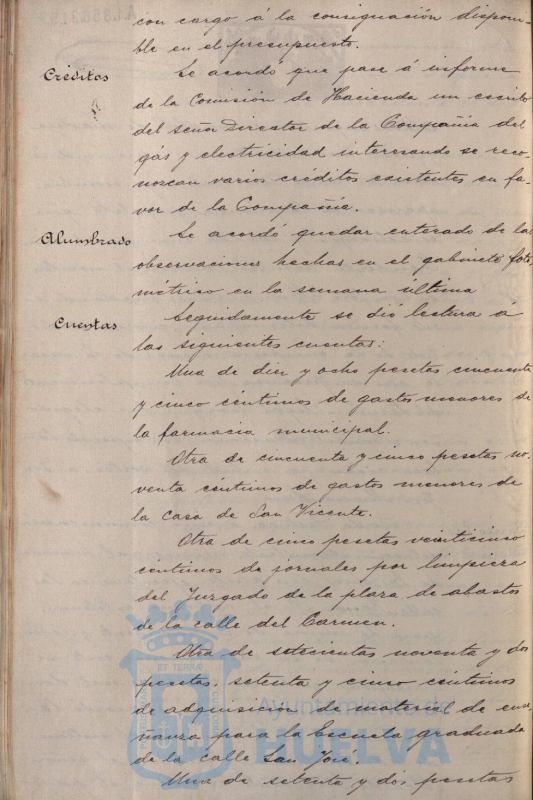 con cargo á la consignación disponi-
ble en el presupuesto.
Créditos
Se acordó que pase á informe
de la Comisión de Hacienda un escrito
del señor Director de la Compañía del
gás y electricidad interesando se reco-
nozcan varios créditos existentes en fa-
vor de la Compañía.
Alumbrado
Se acordó quedar enterado de las
observaciones hechas en el gabinete foto-
métrico en la semana última
Cuentas
Seguidamente se dió lectura á
las siguientes cuentas:
Una de diez y ocho pesetas cincuenta
y cinco céntimos de gastos menores de
la farmacia municipal.
Otra de cincuenta y cinco pesetas no-
venta céntimos de gastos menores de
la casa de San Vicente.
Otra de cinco pesetas veinticinco
céntimos de jornales por limpieza
del Juzgado de la plaza de abastos
de la calle del Carmen.
Otra de setecientas noventa y dos
pesetas, setenta y cinco céntimos
de adquisición de material de ense-
ñanza para la Escuela graduada
de la calle San José.
Una de setenta y dos pesetas
Ayuntamiento de
HUELVA